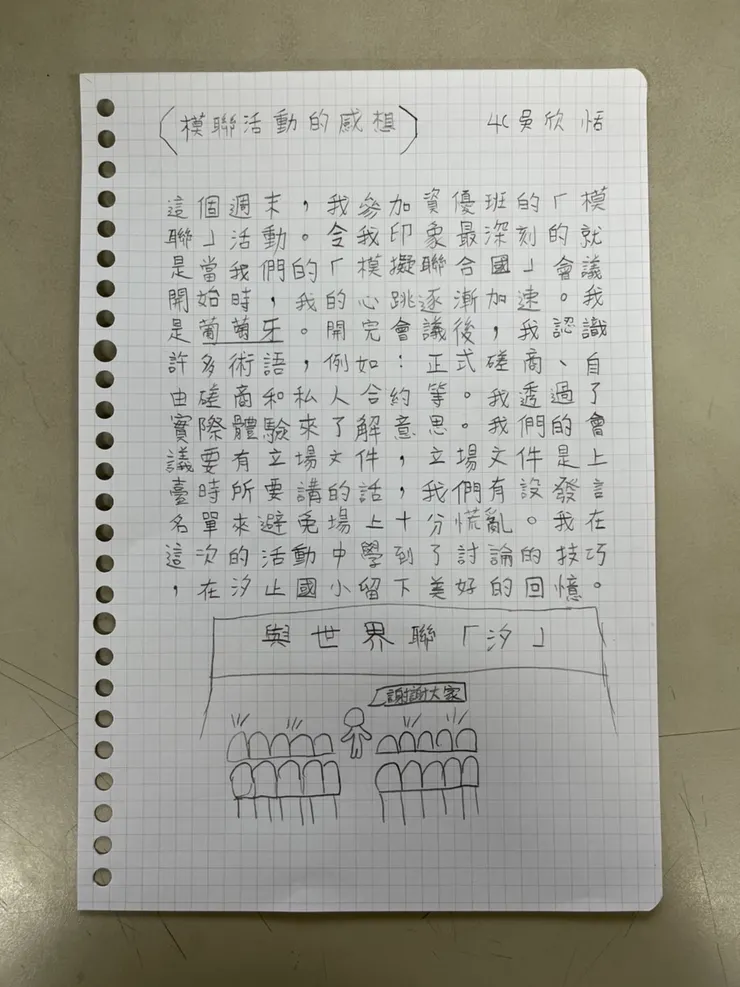 (模聯活動的感想) 4C吳欣恬
這個週末，我參加資優班的「模
聯」活動。令我印象最深刻的就
是當我們的「模擬聯合國」會議
開始時，我的心跳逐漸加速。我
是葡萄牙。開完會議後，我認識
許多術語，例如：正式磋商、自
由磋商和私人合約等。我透過了
實際體驗來了解意思。我們的會
議要有立場文件，立場文件是上
臺時所要講的話，我們有設發言
名單來避免場上十分慌亂。我在
這次的活動中學到了討論的技巧
，在汐止國小留下美好的回憶。
與世界聯「汐」
謝謝大家